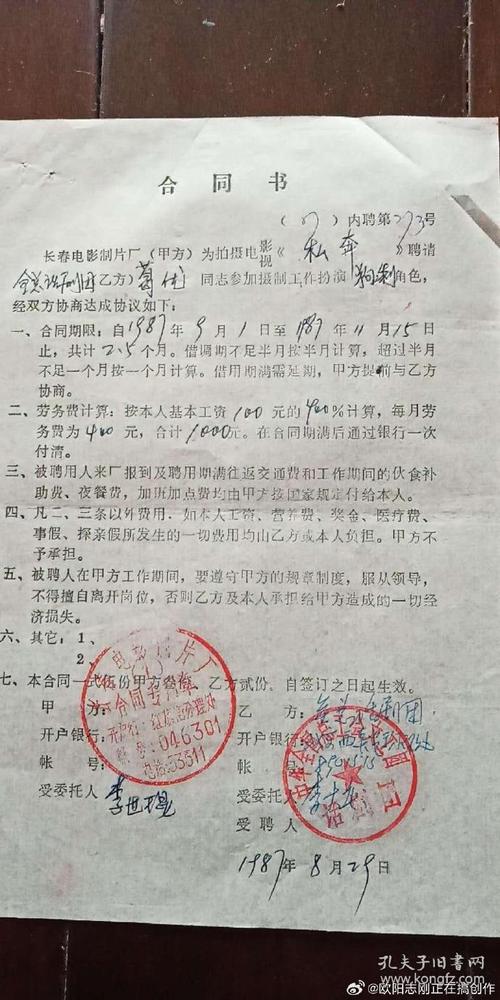 合同书
(87)内聘第273号
长春电影制片厂(甲方)为拍摄电影视《私奔》聘请
全总话剧团(乙方)葛优同志参加摄制工作扮演狗剩角色,
经双方协商达成协议如下:
一、合同期限:自1987年9月1日至1987年11月15日
止,共计2.5个月。借调期不足半月按半月计算,超过半月
不足一个月按一个月计算。借用期满需延期,甲方提前与乙方
协商。
二、劳务费计算:按本人基本工资100元的400%计算,每月劳
务费为400元,合计1000元。在合同期满后通过银行一次
付清。
三、被聘用人来厂报到及聘用期满往返交通费和工作期间的伙食补
助费、夜餐费,加班加点费均由甲方按国家规定付给本人。
四、凡二、三条以外费用,如本人工资、营养费、奖金、医疗费、
事假、探亲假所发生的一切费用均由乙方或本人负担。甲方不
予承担。
五、被聘人在甲方工作期间,要遵守甲方的规章制度,服从领导,
不得擅自离开岗位,否则乙方及本人承担给甲方造成的一切经
济损失。
六、其它:1、
2、
七、本合同一式伍份甲方叁份,乙方贰份,自签订之日起生效。
甲方:
乙方:全总话剧团
开户银行:
开户银行:
帐号:
帐号:
受委托人 李世
受委托人
受聘人
1987年8月29日
电影制片厂
合同专用章
046301
电话:53511
话剧团
孔夫子旧书网
@欧阳志刚正在搞创作